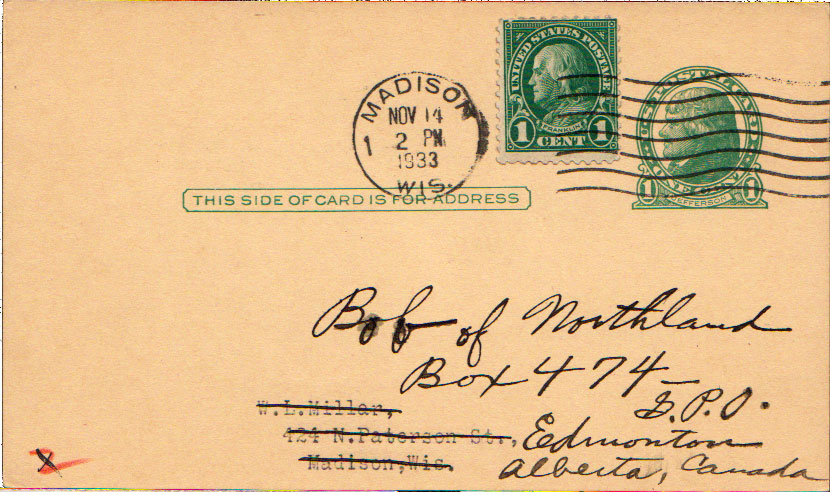 UNITED STATES POSTAGE
FRANKLIN
1 CENT 1
MADISON
NOV 14
1 2 PM
1933
WIS.
1 JEFFERSON 1
THIS SIDE OF CARD IS FOR ADDRESS
Bob of Northland
Box 474
G.P.O.
W.L.Miller,
424 N.Paterson St., Edmonton
Madison,Wis. Alberta, Canada
X